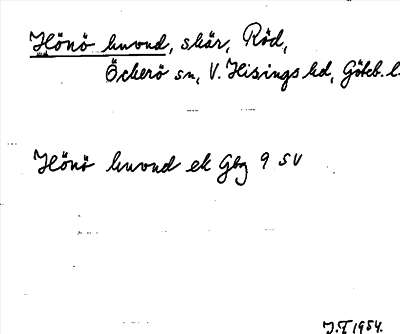 Hönö huvud, skär, Röd,
Öckerö sn, V. Hisings hd, Göteb. l.
Hönö huvud ek Gbg 9 SV
J.T 1954.